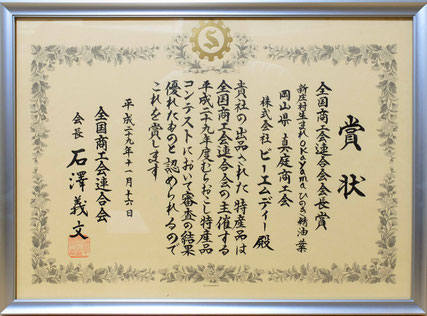 賞状
全国商工会連合会会長賞
新庄村生まれokayamaひのき精油 葉
岡山県 真庭商工会
株式会社 ビーエムディー 殿
貴社の出品された特産品は
全国商工会連合会の主催する
平成二十九年度むらおこし特産品
コンテストにおいて審査の結果
優れたものと認められるので
これを賞します
平成二十九年十一月十六日
全国商工会連合会
会長 石澤義文